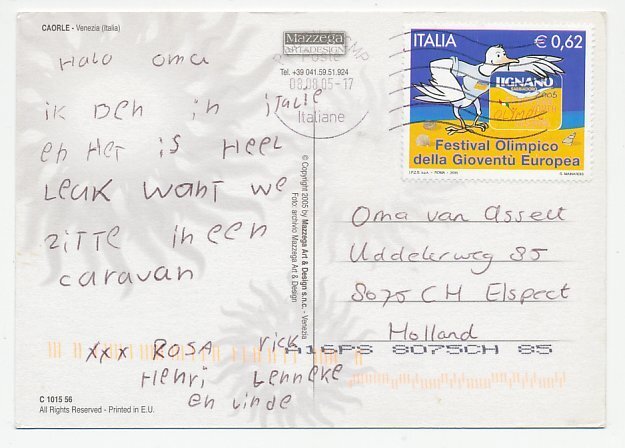 CAORLE - Venezia (Italia)
Halo oma
ik ben in italie
en Het is HEEL
LEUK want we
zitte in een
caravan
xxx ROSA rick
Henri Lenneke
en linde
C 1015 56
All Rights Reserved - Printed in E.U.
Mazzega
ART & DESIGN
Tel. +39 041.59.51.924
Poste
08.08.05-17
Italiane
© Copyright 2005 by Mazzega Art & Design s.n.c. - Venezia
Foto: archivio Mazzega Art & Design
ITALIA € 0,62
LIGNANO
SABBIADORO
2005
Festival Olimpico
della Gioventù Europea
I.P.Z.S. S.p.A. - ROMA - 2005
Oma van Asselt
Uddelerweg 85
8075 CH Elspeet
Holland
A16PS 8075CH 85